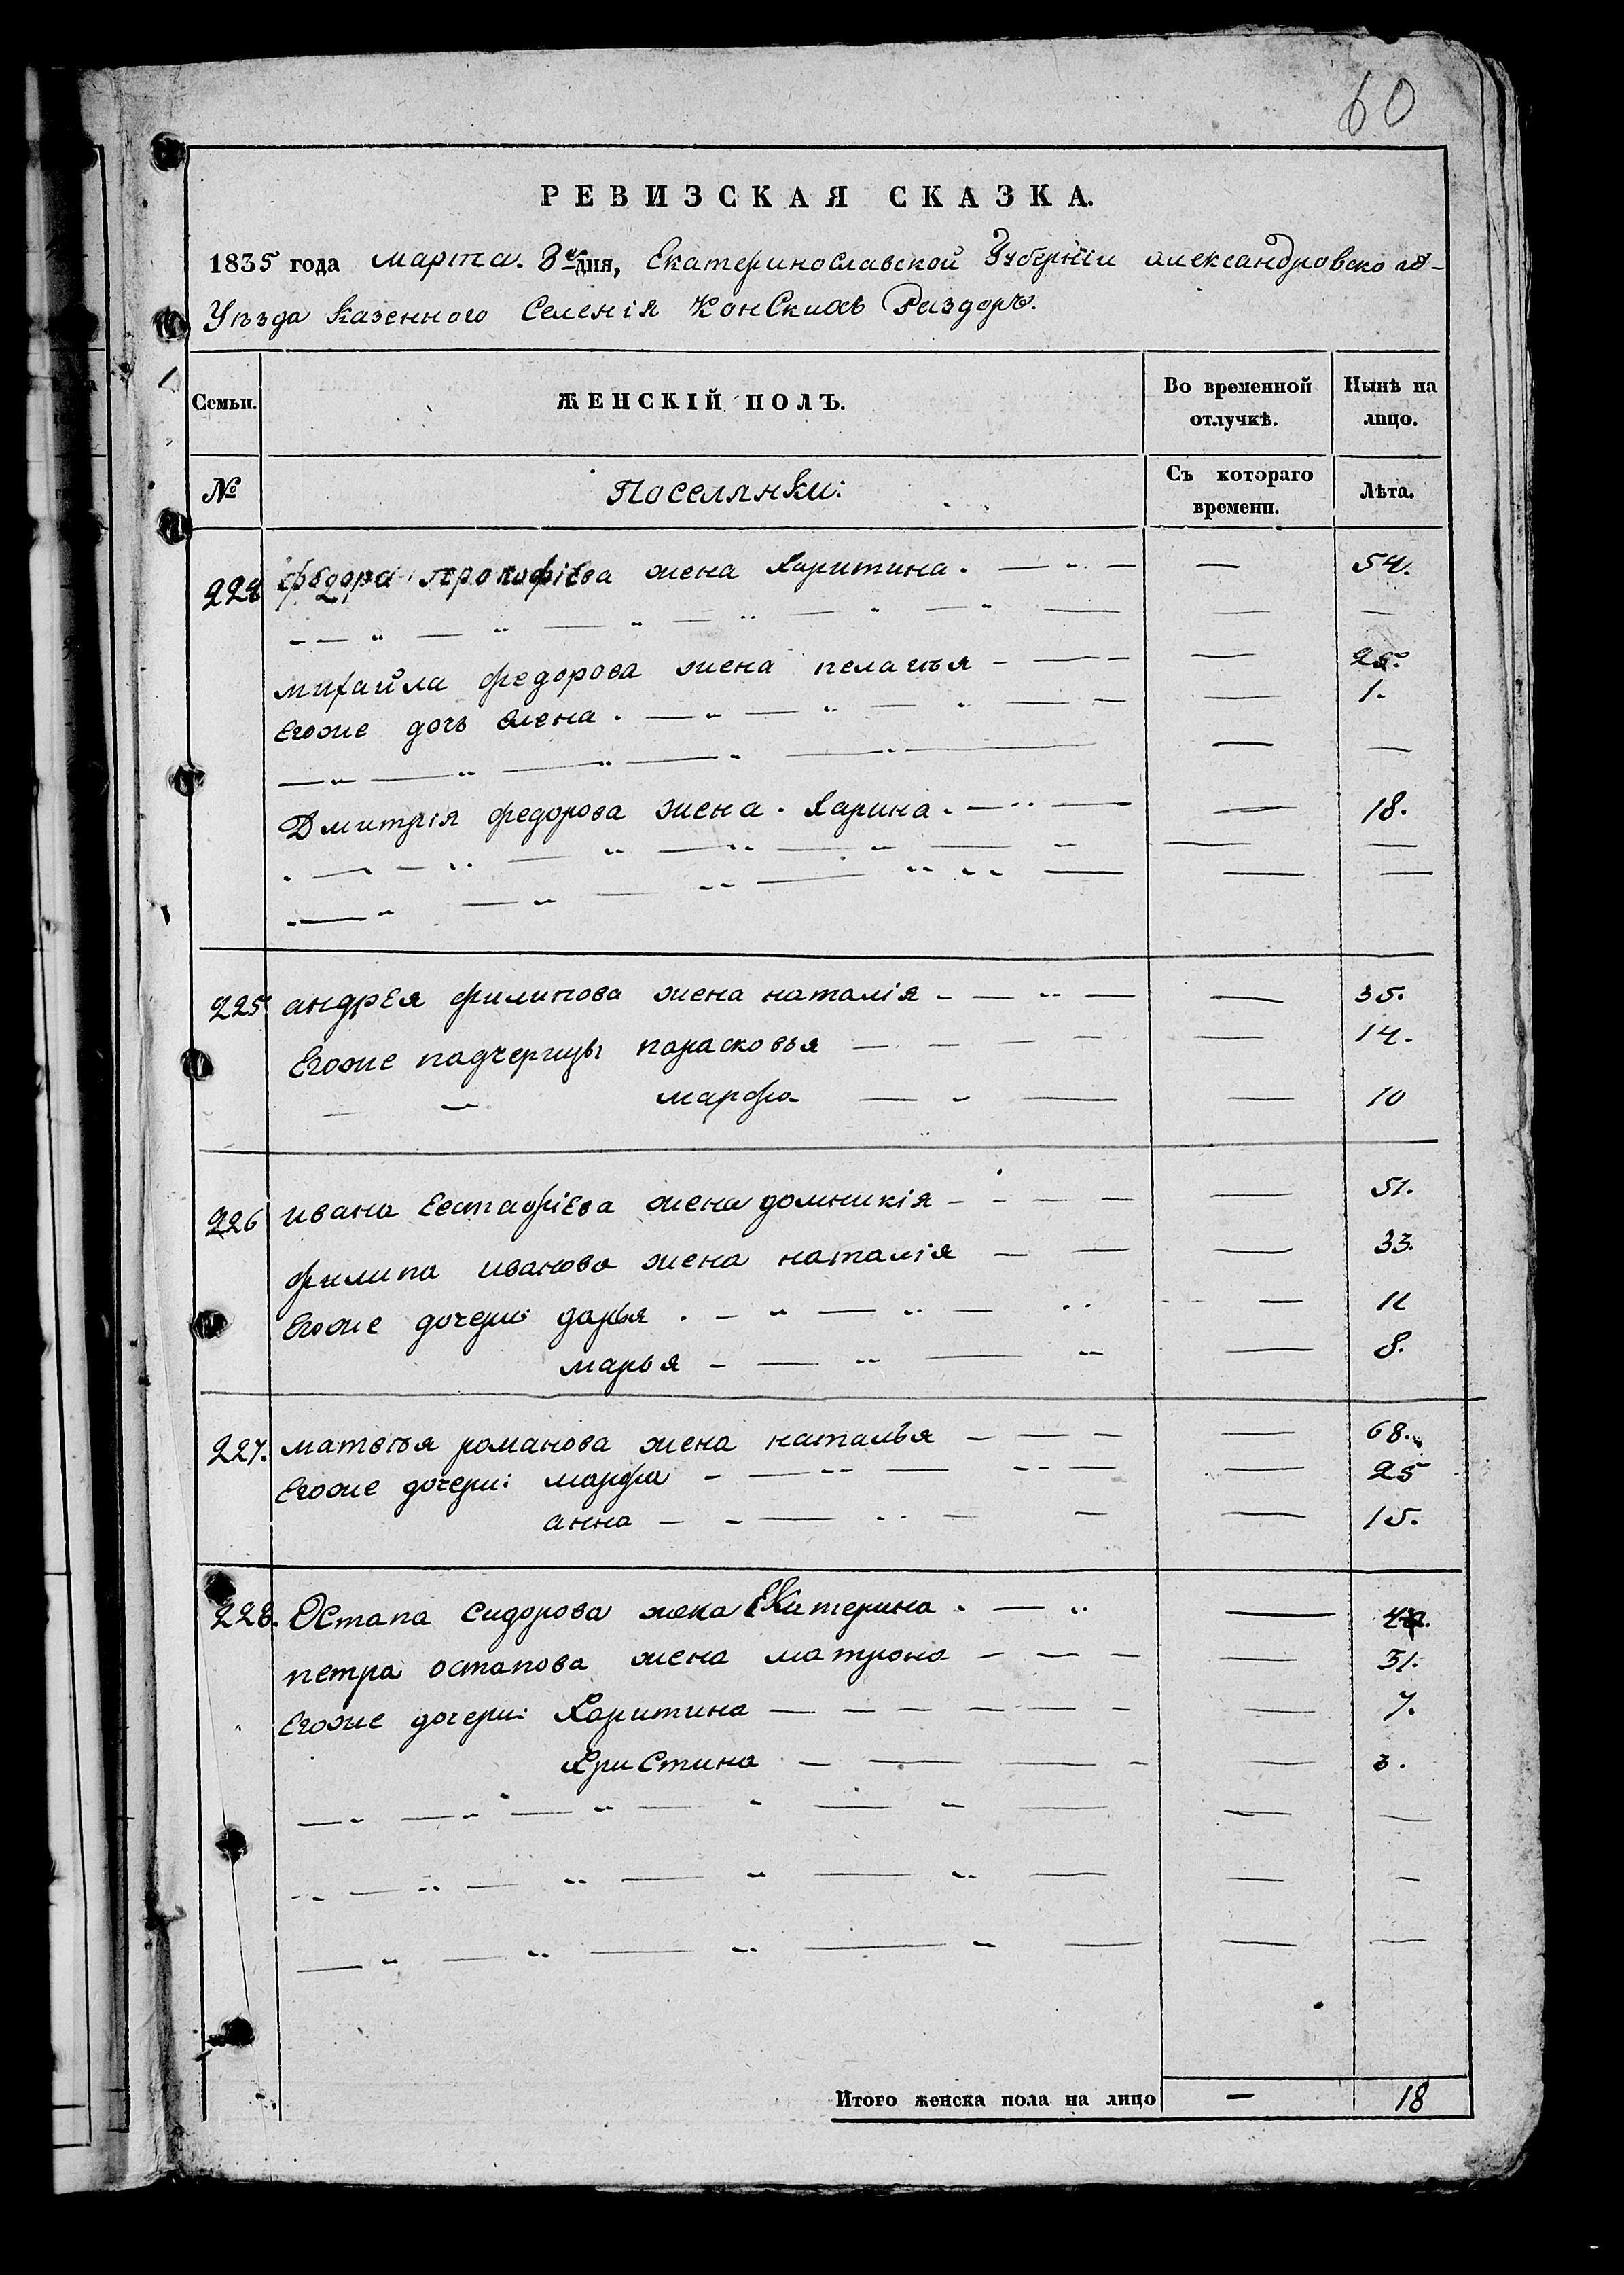 60
РЕВИЗСКАЯ СКАЗКА.
1835 года марта. 8го дня, Екатеринославской Губерніи александровскаго
Уѣзда казенного Селенія КонСкихъ Раздоръ.
Семьи. ЖЕНСКІЙ ПОЛЪ. Во временной отлучкѣ. Нынѣ на лицо.
№ Поселянки: Съ котораго времени. Лѣта.
224 федора прокофіева жена Харитина. — — 54.
михайла федорова жена пелагѣя — — 25.
Егоже дочь Елена. — — 1.
Дмитрія федорова жена. Харина. — — 18.
225 андрея филипова жена наталія — — 35.
Егоже падчерицы парасковья — — 14.
марфа — — 10
226 ивана Евстафіева жена домникія — — 51.
филипа иванова жена наталія — — 33.
Егоже дочери: дарья. — — 11
марья — — 8.
227. матвѣя романова жена наталья — — 68.
Егоже дочери: марфа — — 25
анна — — 15.
228. Остапа сидорова жена Екатерина. — —
петра остапова жена матрона — — 31.
Егоже дочери: Харитина — — 7.
ХриСтина — — 3.
Итого женска пола на лицо — 18